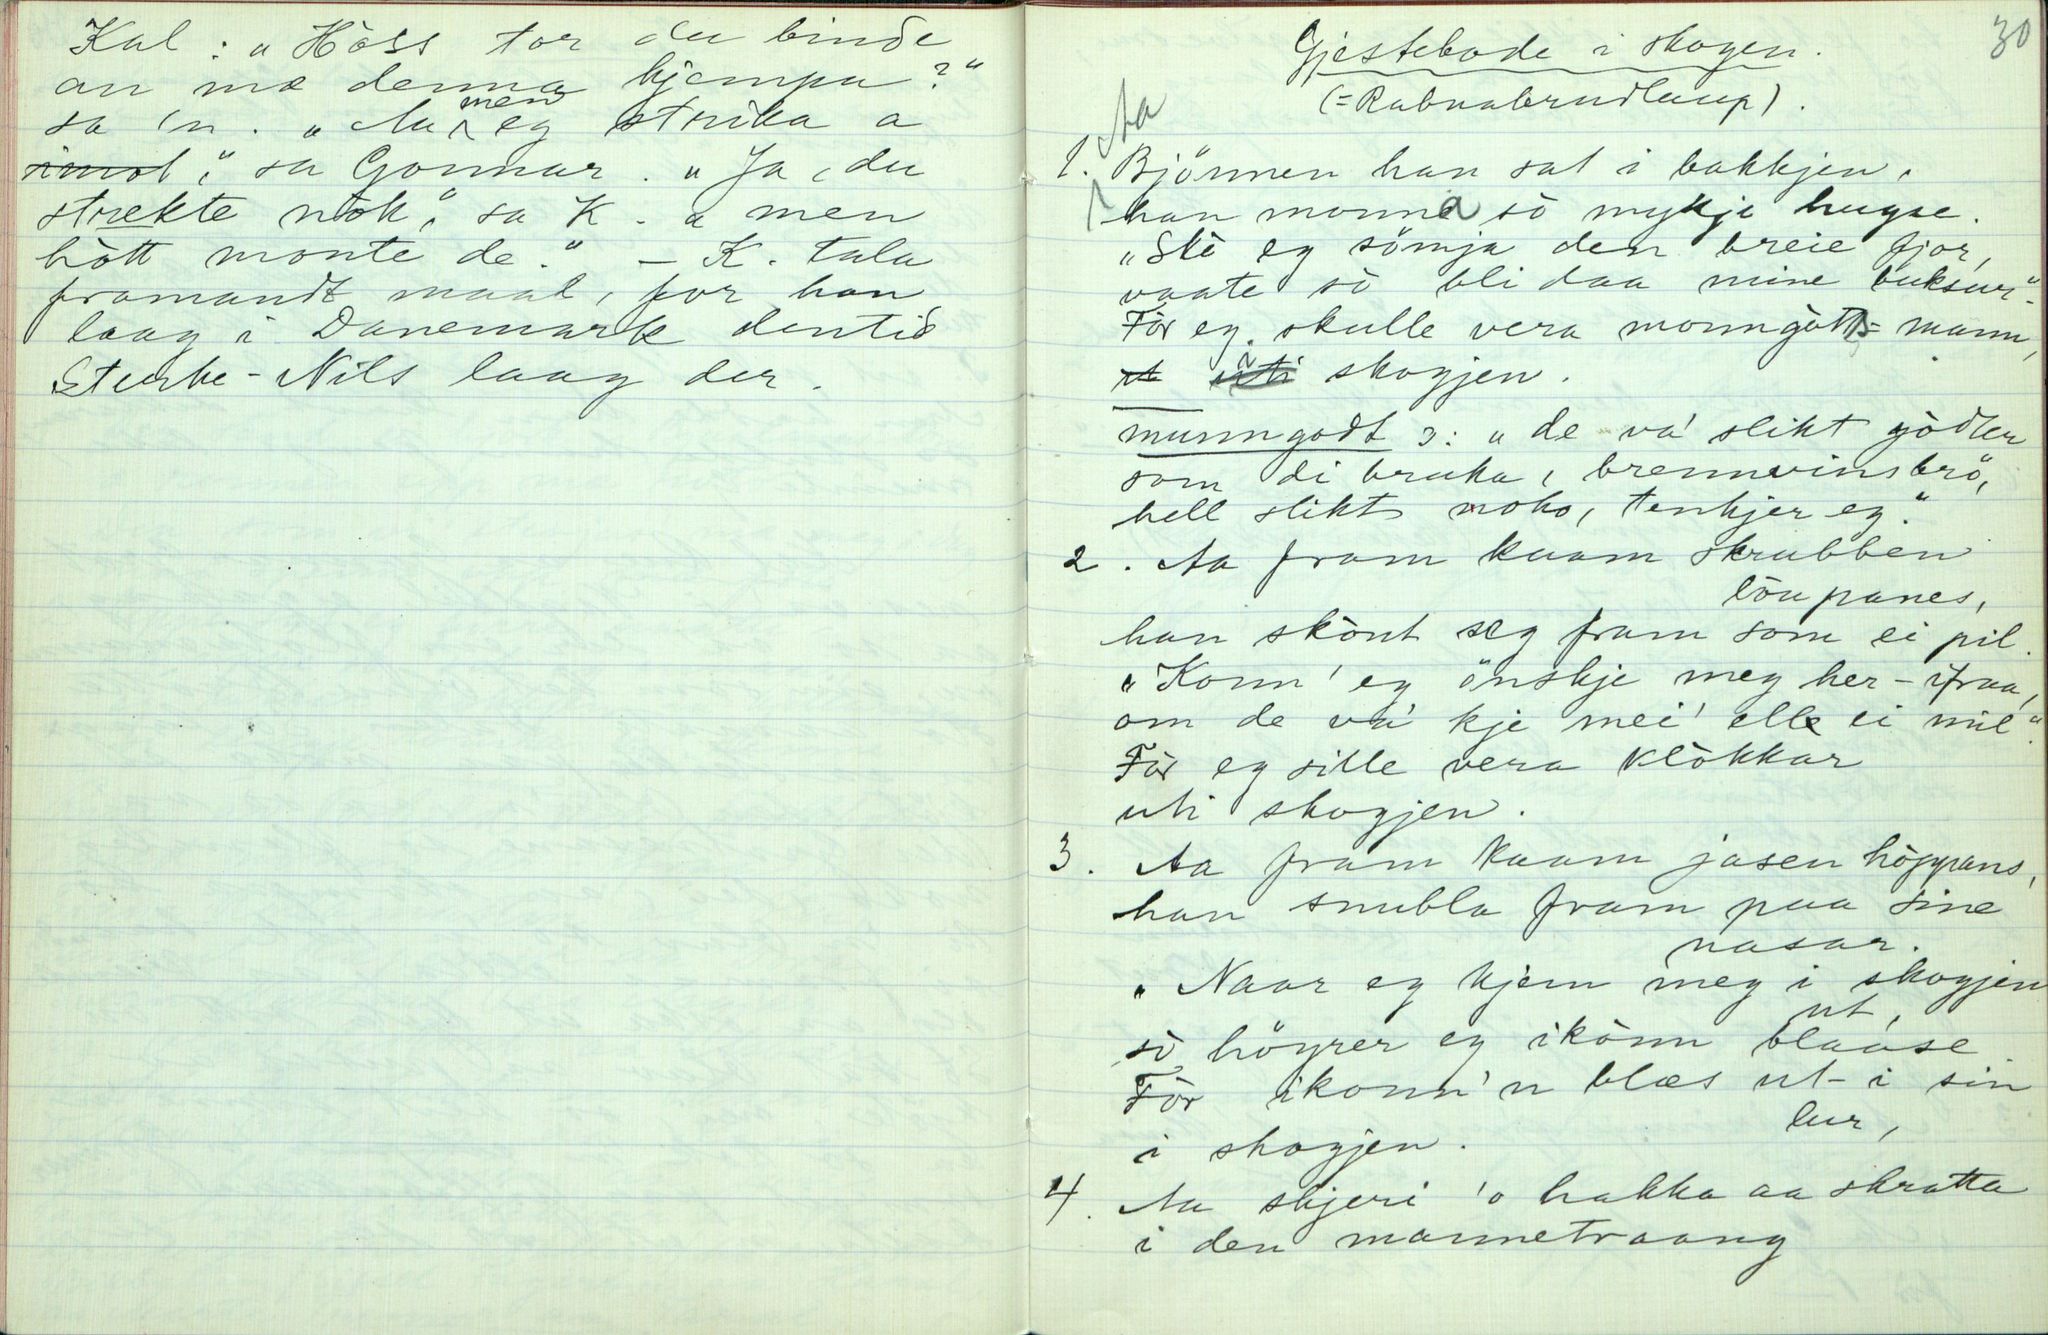 Kal: „Hòss tor du binde
an mæ denna kjempa?"
sa 'n. „Aa men eg strika a
imot", sa Gonnar. „Ja, du
strekte nòk", sa K. „ men
hòtt monte de." – K. tala
framandt maal, for han
laag i Danemark dentid
Sterke-Nils laag der.
30
Gjestebode i skogen.
(= Rabnabrudlaup).
Aa
1. Bjönnen han sat i bakkjen,
han monna sò mykje hugse.
„Skò eg sömja den breie fjor,
vaate sò bli daa mine buksur".
För eg skulle vera monngòtts-mann,
i skogjen.
munngodt ɔ: „de va' slikt gòdter
som di bruka, brennevinsbrö,
hell slikt noko, tenkjer eg."
2. Aa fram kaam skrubben
löupanes,
han skònt seg fram som ei pil.
„Konn' eg önskje meg her-ifraa,
om de va' kje mei' elle ei mil".
För eg sille vera klòkkar
uti skogjen.
3. Aa fram kaam jasen hòppans,
han snubla fram paa sine
nasar.
„Naar eg kjem meg i skogjen
ut,
sò höyrer eg ikònn blaase.
För ikonn'n blæs ut-i sin
lur,
i skogjen.
4. Aa skjeri 'o hakka aa skratta
i den mannetraang